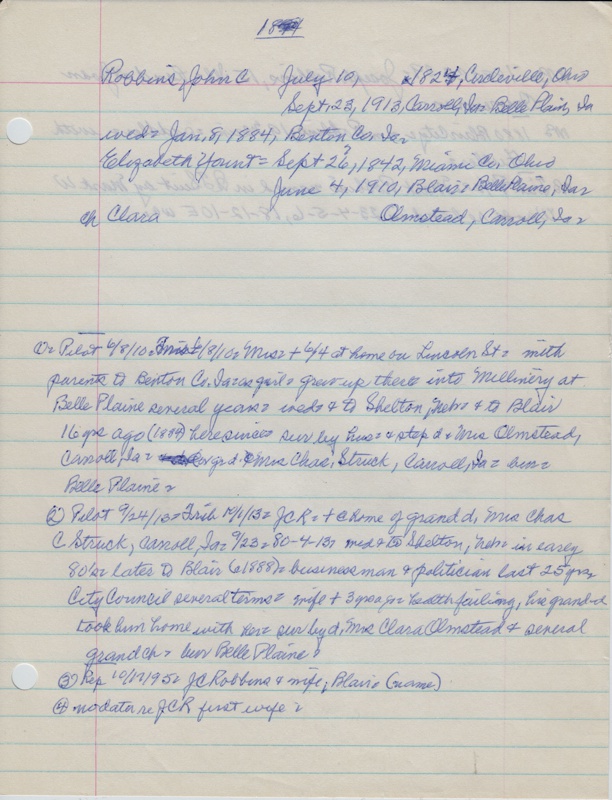 Robbins, John C July 10, 1824, Circleville, Ohio
Sept, 23, 1913, Carroll, Ia= Belle Plain, Ia
wed= Jan, 8, 1884, Benton Co, Ia=
Elizabeth Yount= Sept 26, 1842, Miami Co, Ohio
June 4, 1910, Blair= Belle Plaine, Ia=
ch Clara Olmstead, Carroll, Ia=
①= Pilot 6/8/10= 6/8/10= Mrs= + 6/4 at home on Lincoln St= with
parents to Benton Co, Ia= as girl= grew up there= into Millinery at
Belle Plaine several years= wed= & to Shelton, Neb= & to Blair
16 yrs ago (1884) here since= sur by hus= & step d= Mrs Olmstead,
Carroll, Ia= gr d= Mrs Chas, Struck, Carroll, Ia= bur=
Belle Plaine=
② Pilot 9/24/13= Trib 10/1/13= JCR= + @ home of grand d, Mrs Chas
C Struck, Carroll, Ia= 9/23= 80-4-13= wed & to Shelton, Neb= in early
80's= later to Blair (1888)= business man & politician last 25 yrs=
City Council several terms= wife + 3 yrs ago= health failing, his grand-d
took him home with her= sur by d, Mrs Clara Olmstead & several
grand ch= bur Belle Plaine=
③ Rep 10/17/95= JC Robbins & wife, Blair= (name)
④ no data re JCR first wife=